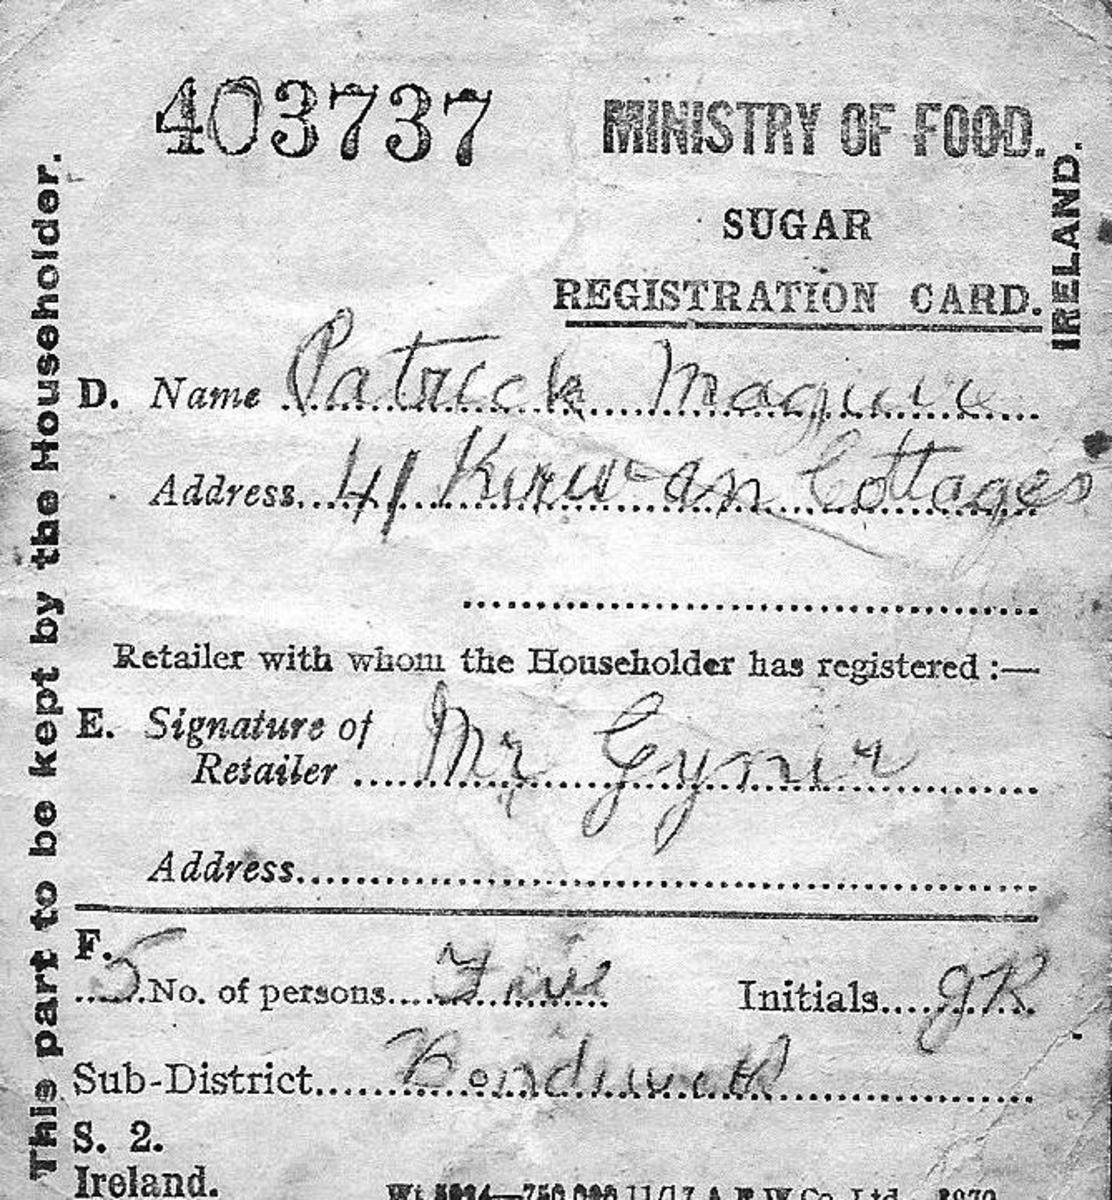 403737
MINISTRY OF FOOD.
SUGAR
REGISTRATION CARD.
IRELAND.
This part to be kept by the Householder.
D. Name Patrick Maguire
Address 41 Kirwan Cottages
Retailer with whom the Householder has registered :—
E. Signature of
Retailer Mr
Address
F.
5 No. of persons Five Initials JR
Sub-District
S. 2.
Ireland.
11/17 A. F. W. Co. Ltd.